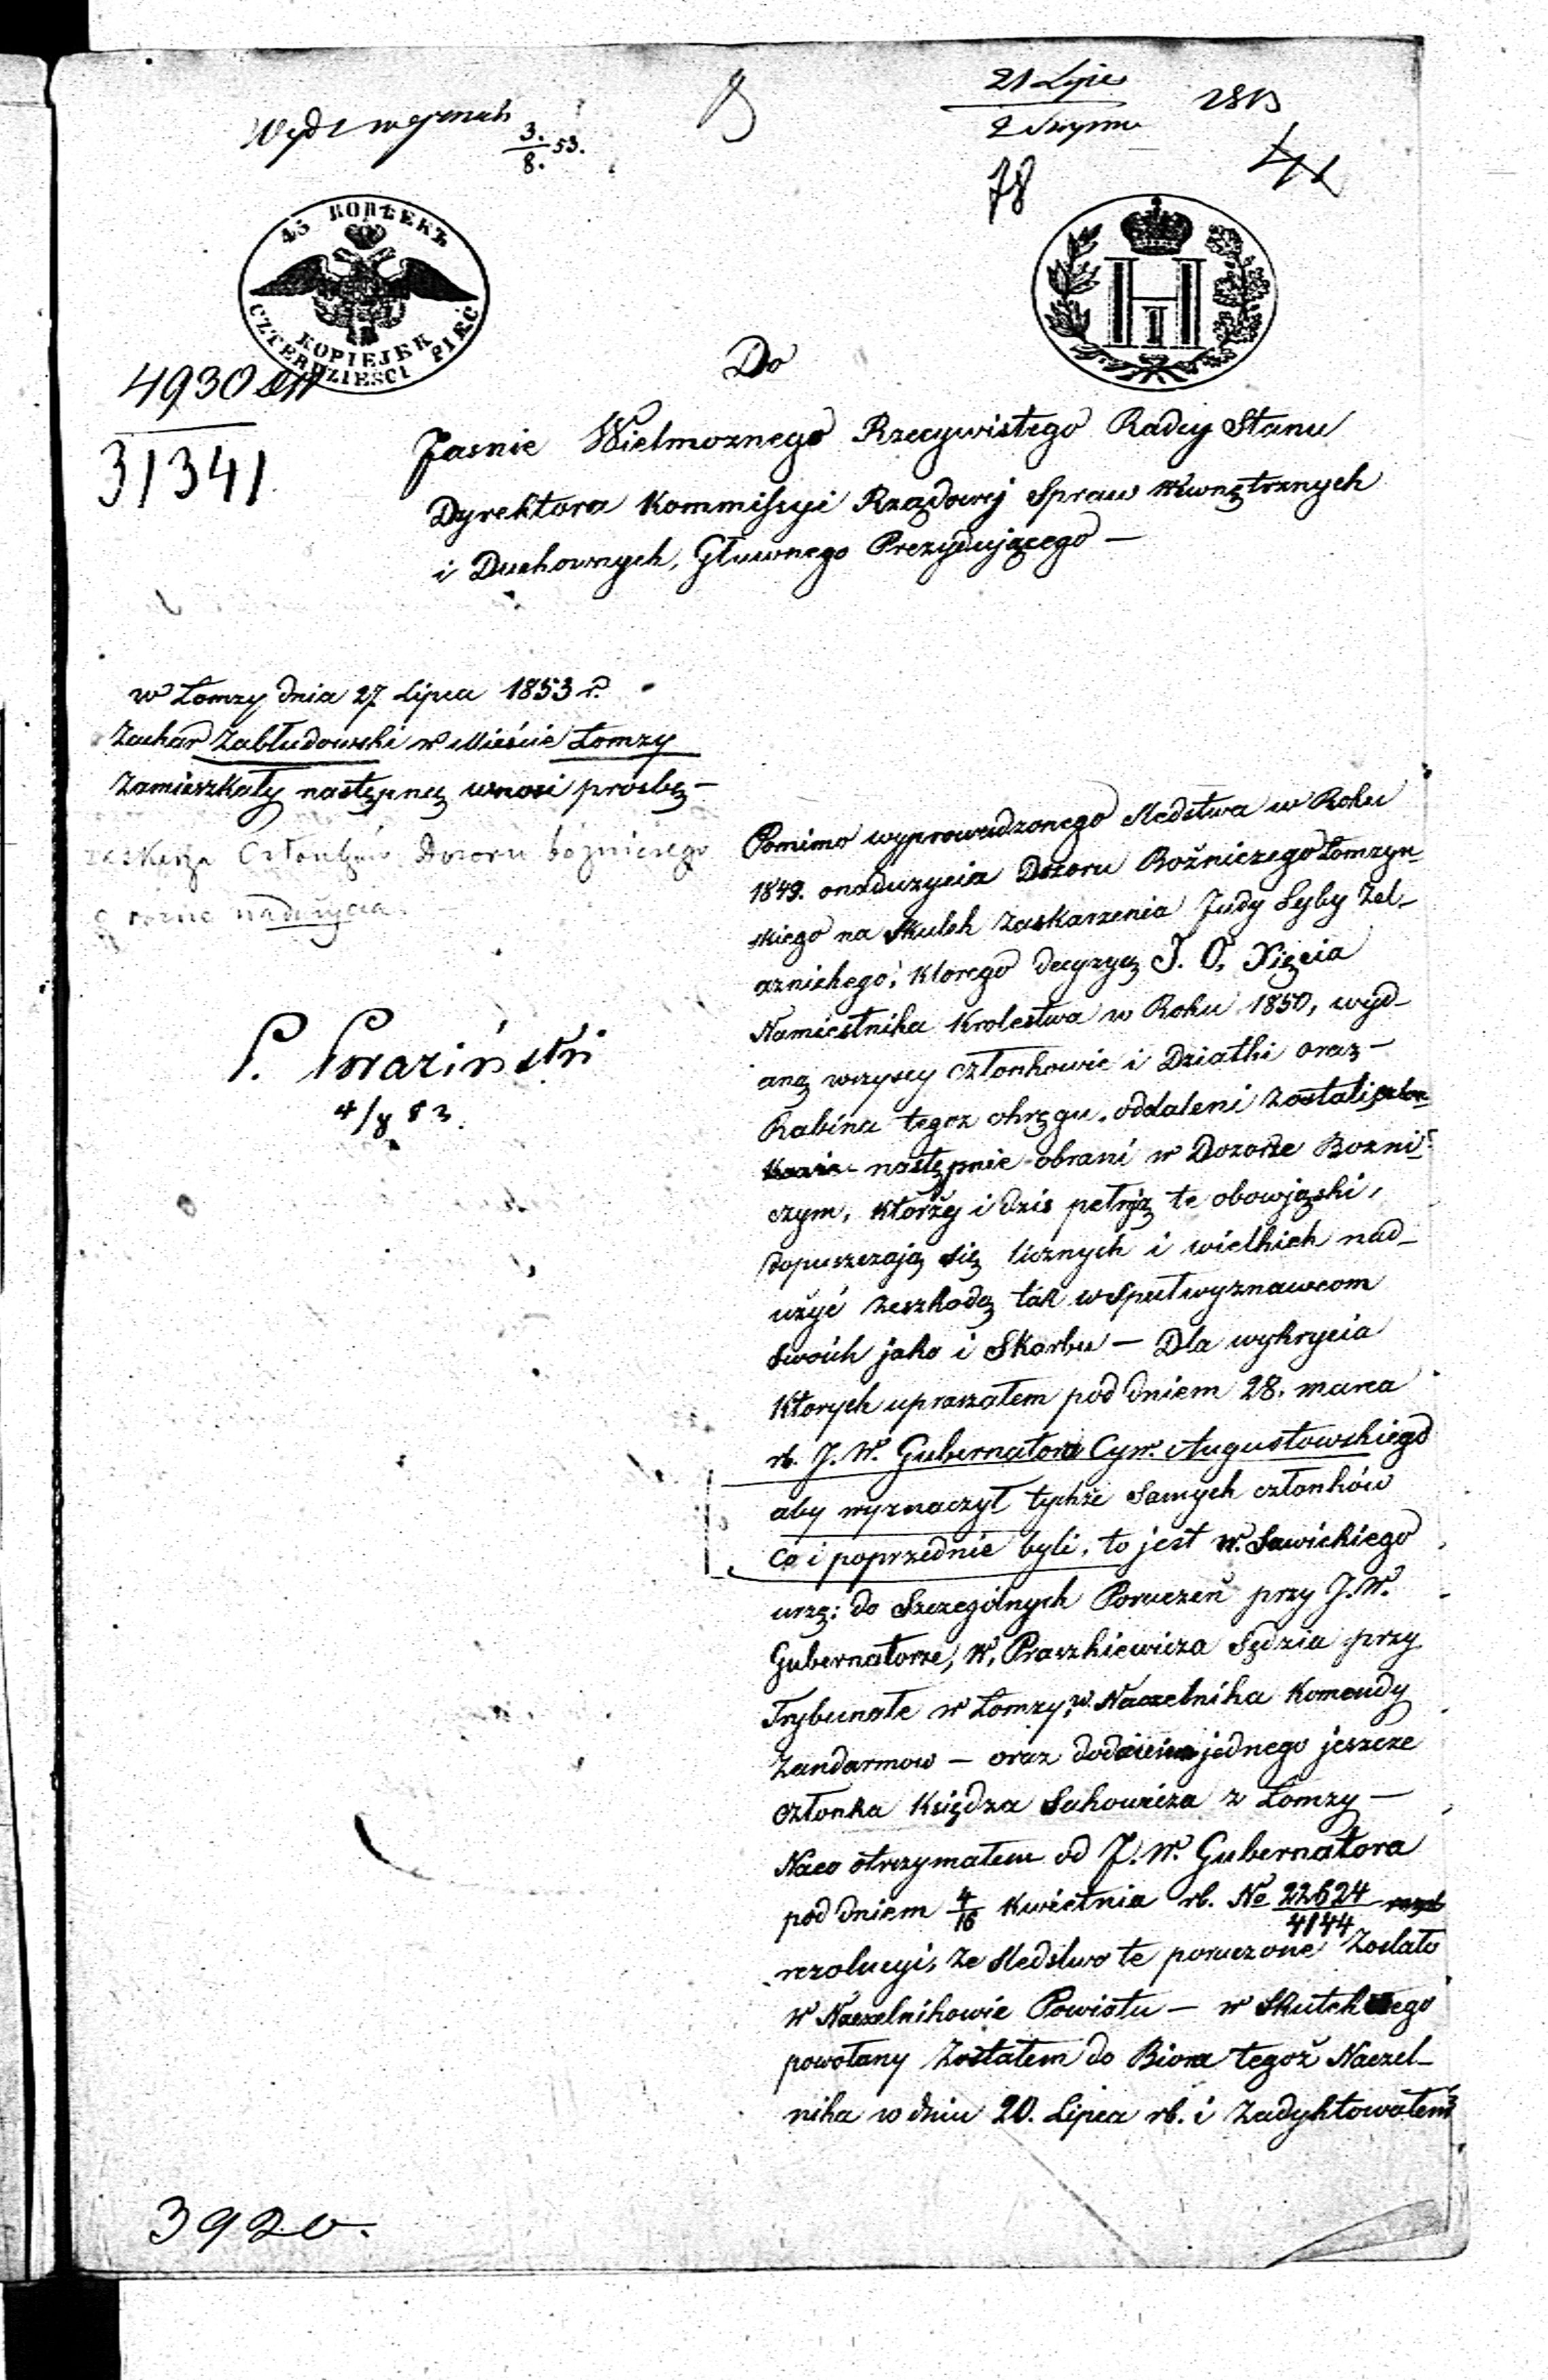 3.
8. 53.
21 Lipca
2 Sierpnia
78
45 КОПѢЕКЪ
KOPIEJEK
CZTERDZIEŚCI PIĘĆ
H I
4930
31341
Do
Jasnie Wielmoznego Rzeczywistego Radcy Stanu
Dyrektora Kommissyi Rządowej Spraw Wewnętrznych
i Duchownych, Głuwnego Prezydującego —
w Łomzy dnia 27 Lipca 1853 r.
Zachar Zabłudowski w Mieście Łomzy
Zamieszkały następną wnosi prosbę —
zaskarża Członków Dozoru bóżniczego
o rozne nadużycia.
4/8 53.
Pomimo wyprowadzonego sledstwa w Roku
1849. onadurzycia Dozoru Bożniczego Łomzyn-
skiego na Skutek zaskarzenia Judy Leyby Zel-
aznickego; ktorego decyzyą J. O. Xięcia
Namiestnika Krolestwa w Roku 1850, wyd-
aną wszyscy członkowie i Dziatki oraz —
Rabina tegoz okręgu, oddaleni zostali
następnie obrani w Dozorze Bozni-
czym, ktorzy i dzis pełnią te obowjązki,
dopuszczają się licznych i wielkich nad-
użyć zeszkodą tak wspułwyznawcom
swoich jako i Skarbu — Dla wykrycia
ktorych upraszałem pod dniem 28. marca
rb. J. W. Gubernatora Cyw. Augustowskiego
aby wyznaczył tychże samych członków
co i poprzednie byli, to jest W. Sawickiego
urzę: do Szczególnych Poruczeń przy J. W.
Gubernatorze, W. Praszkiewicza Sędzia przy
Trybunale w Łomzy, W. Naczelnika Komendy
Zandarmow — oraz jednego jeszcze
członka Księdza z Łomzy —
Naco otrzymałem od J. W. Gubernatora
pod dniem 4/16 Kwietnia rb. No 22624/4144
rezolucyi, ze sledstwo te poruczone Zostało
W Naczelnikowie Powiatu — w Skutek tego
powołany Zostałem do Biora tegoż Naczel-
nika w dniu 20. Lipca rb. i Zadyktowałem
3920.